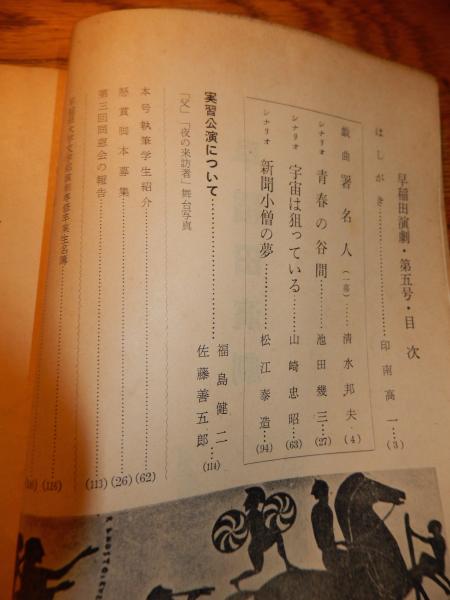 早稲田演劇・第五号・目次
はしがき……………印南高一…(3)
戯曲 署名人（一幕）……清水邦夫…(4)
シナリオ 青春の谷間……………池田幾三…(27)
シナリオ 宇宙は狙っている………山崎忠昭…(63)
シナリオ 新聞小僧の夢…………松江泰造…(94)
実習公演について……………福島健二
佐藤善五郎…(114)
「父」「夜の来訪者」舞台写真
本号執筆学生紹介……………(62)
懸賞脚本募集……………(26)
第三回同窓会の報告……………(113)
早稲田大学文学部演劇専修卒業生名簿……………(116)